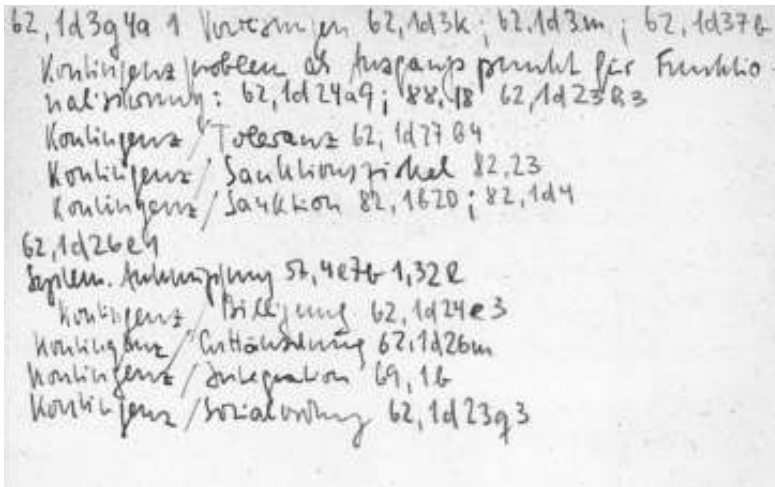 62,1d3g4a 1 62,1d3k; 62,1d3m; 62,1d37b
Kontingenzproblem als Ausgangspunkt für Funktio-
nalisierung: 62,1d24a9; 88,18 62,1d23e3
Kontingenz / Toleranz 62,1d27g4
Kontingenz / Sanktionszirkel 82,23
Kontingenz / Sanktion 82,1b20; 82,1d4
62,1d26e1
System. Anknüpfung 57,4e7b 1,32e
Kontingenz / Billigung 62,1d24e3
Kontingenz / Enttäuschung 62,1d26m
Kontingenz / Integration 69,1b
Kontingenz / Sozialordnung 62,1d23g3